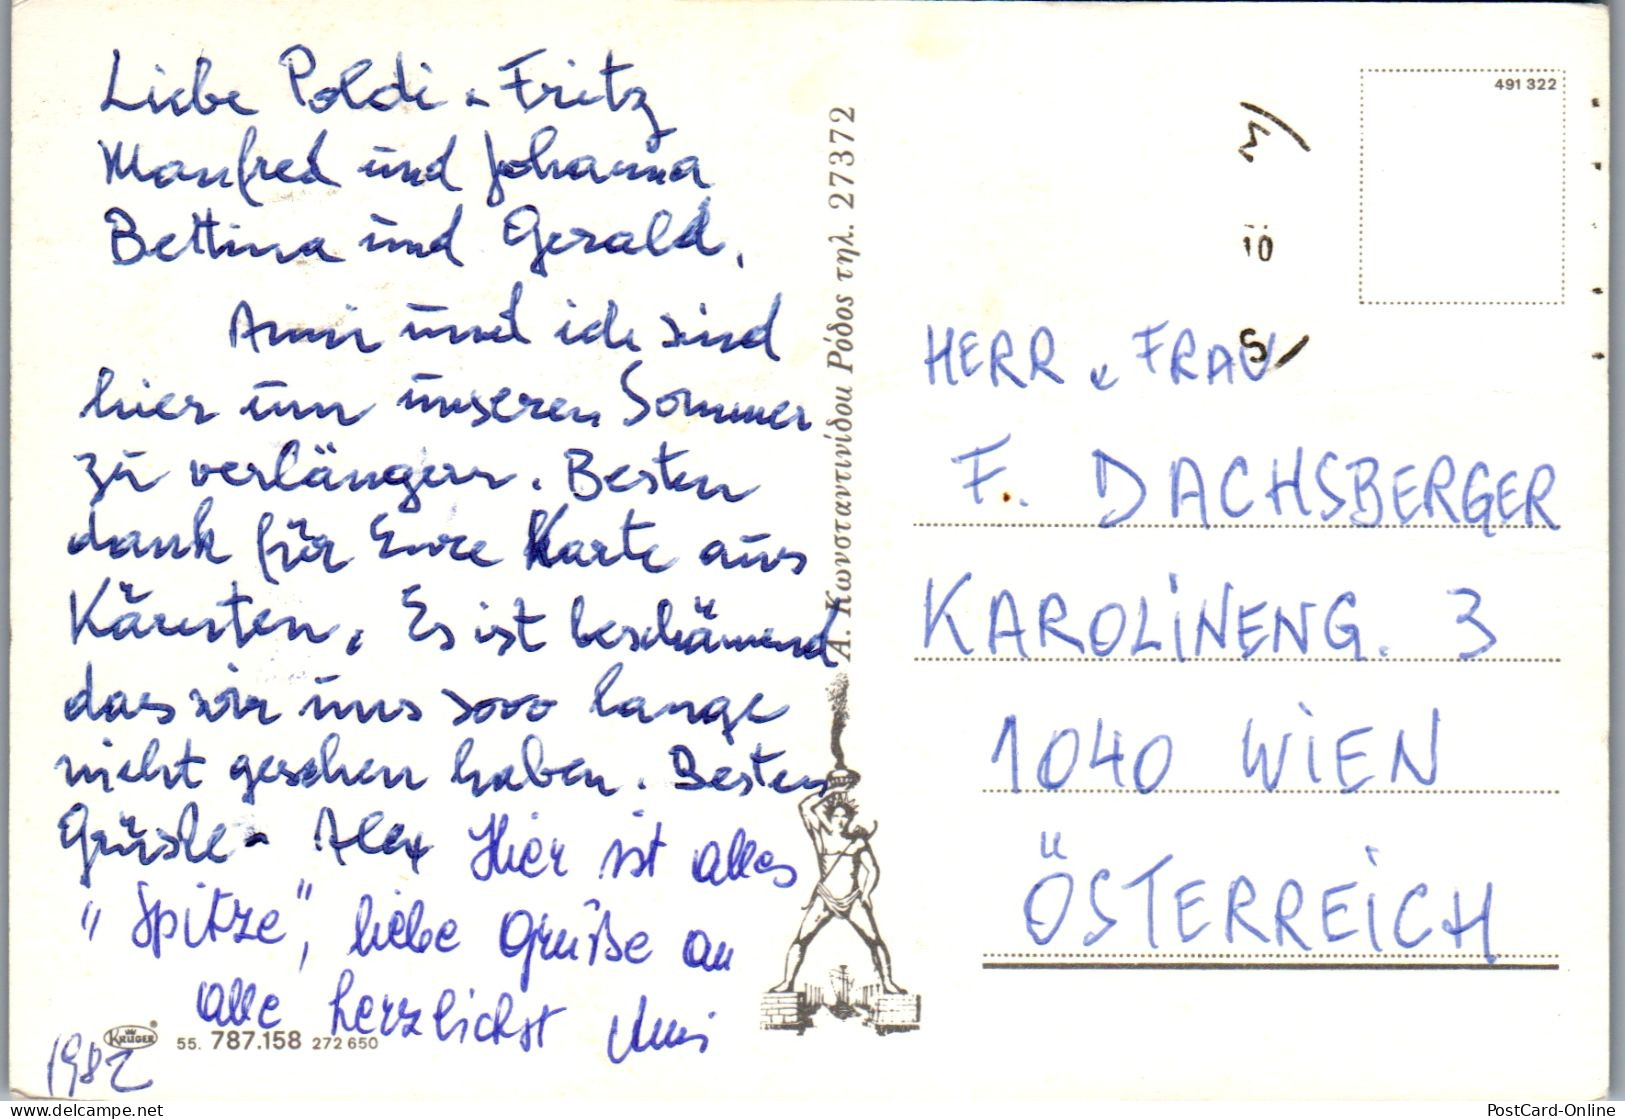 Liebe Poldi u Fritz
Manfred und Johanna
Bettina und Gerald,
Anni und ich sind
hier um unseren Sommer
zu verlängern. Besten
dank für Eure Karte aus
Kärnten. Es ist beschämend
das wir uns sooo lange
nicht gesehen haben. Besten
Grüsse - Alex Hier ist alles
"Spitze", liebe Grüße an
alle herzlichst Anni
1982
KRÜGER 55. 787.158 272 650
Α. Κωνσταντινίδου Ρόδος τηλ. 27372
491 322
10
S
HERR u FRAU
F. DACHSBERGER
KAROLINENG. 3
1040 WIEN
ÖSTERREICH
http://www.delcampe.net
PostCard-Online